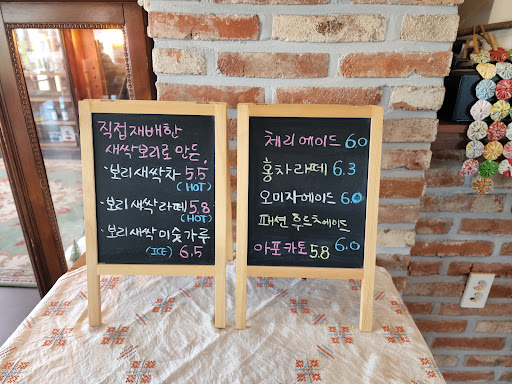 직접재배한
새싹보리로 만든,
·보리새싹차 5.5
(HOT)
·보리새싹라떼 5.8
(HOT)
·보리새싹미숫가루
(ICE) 6.5
체리에이드 6.0
홍차라떼 6.3
오미자에이드 6.0
패션후르츠에이드
6.0
아포카토 5.8